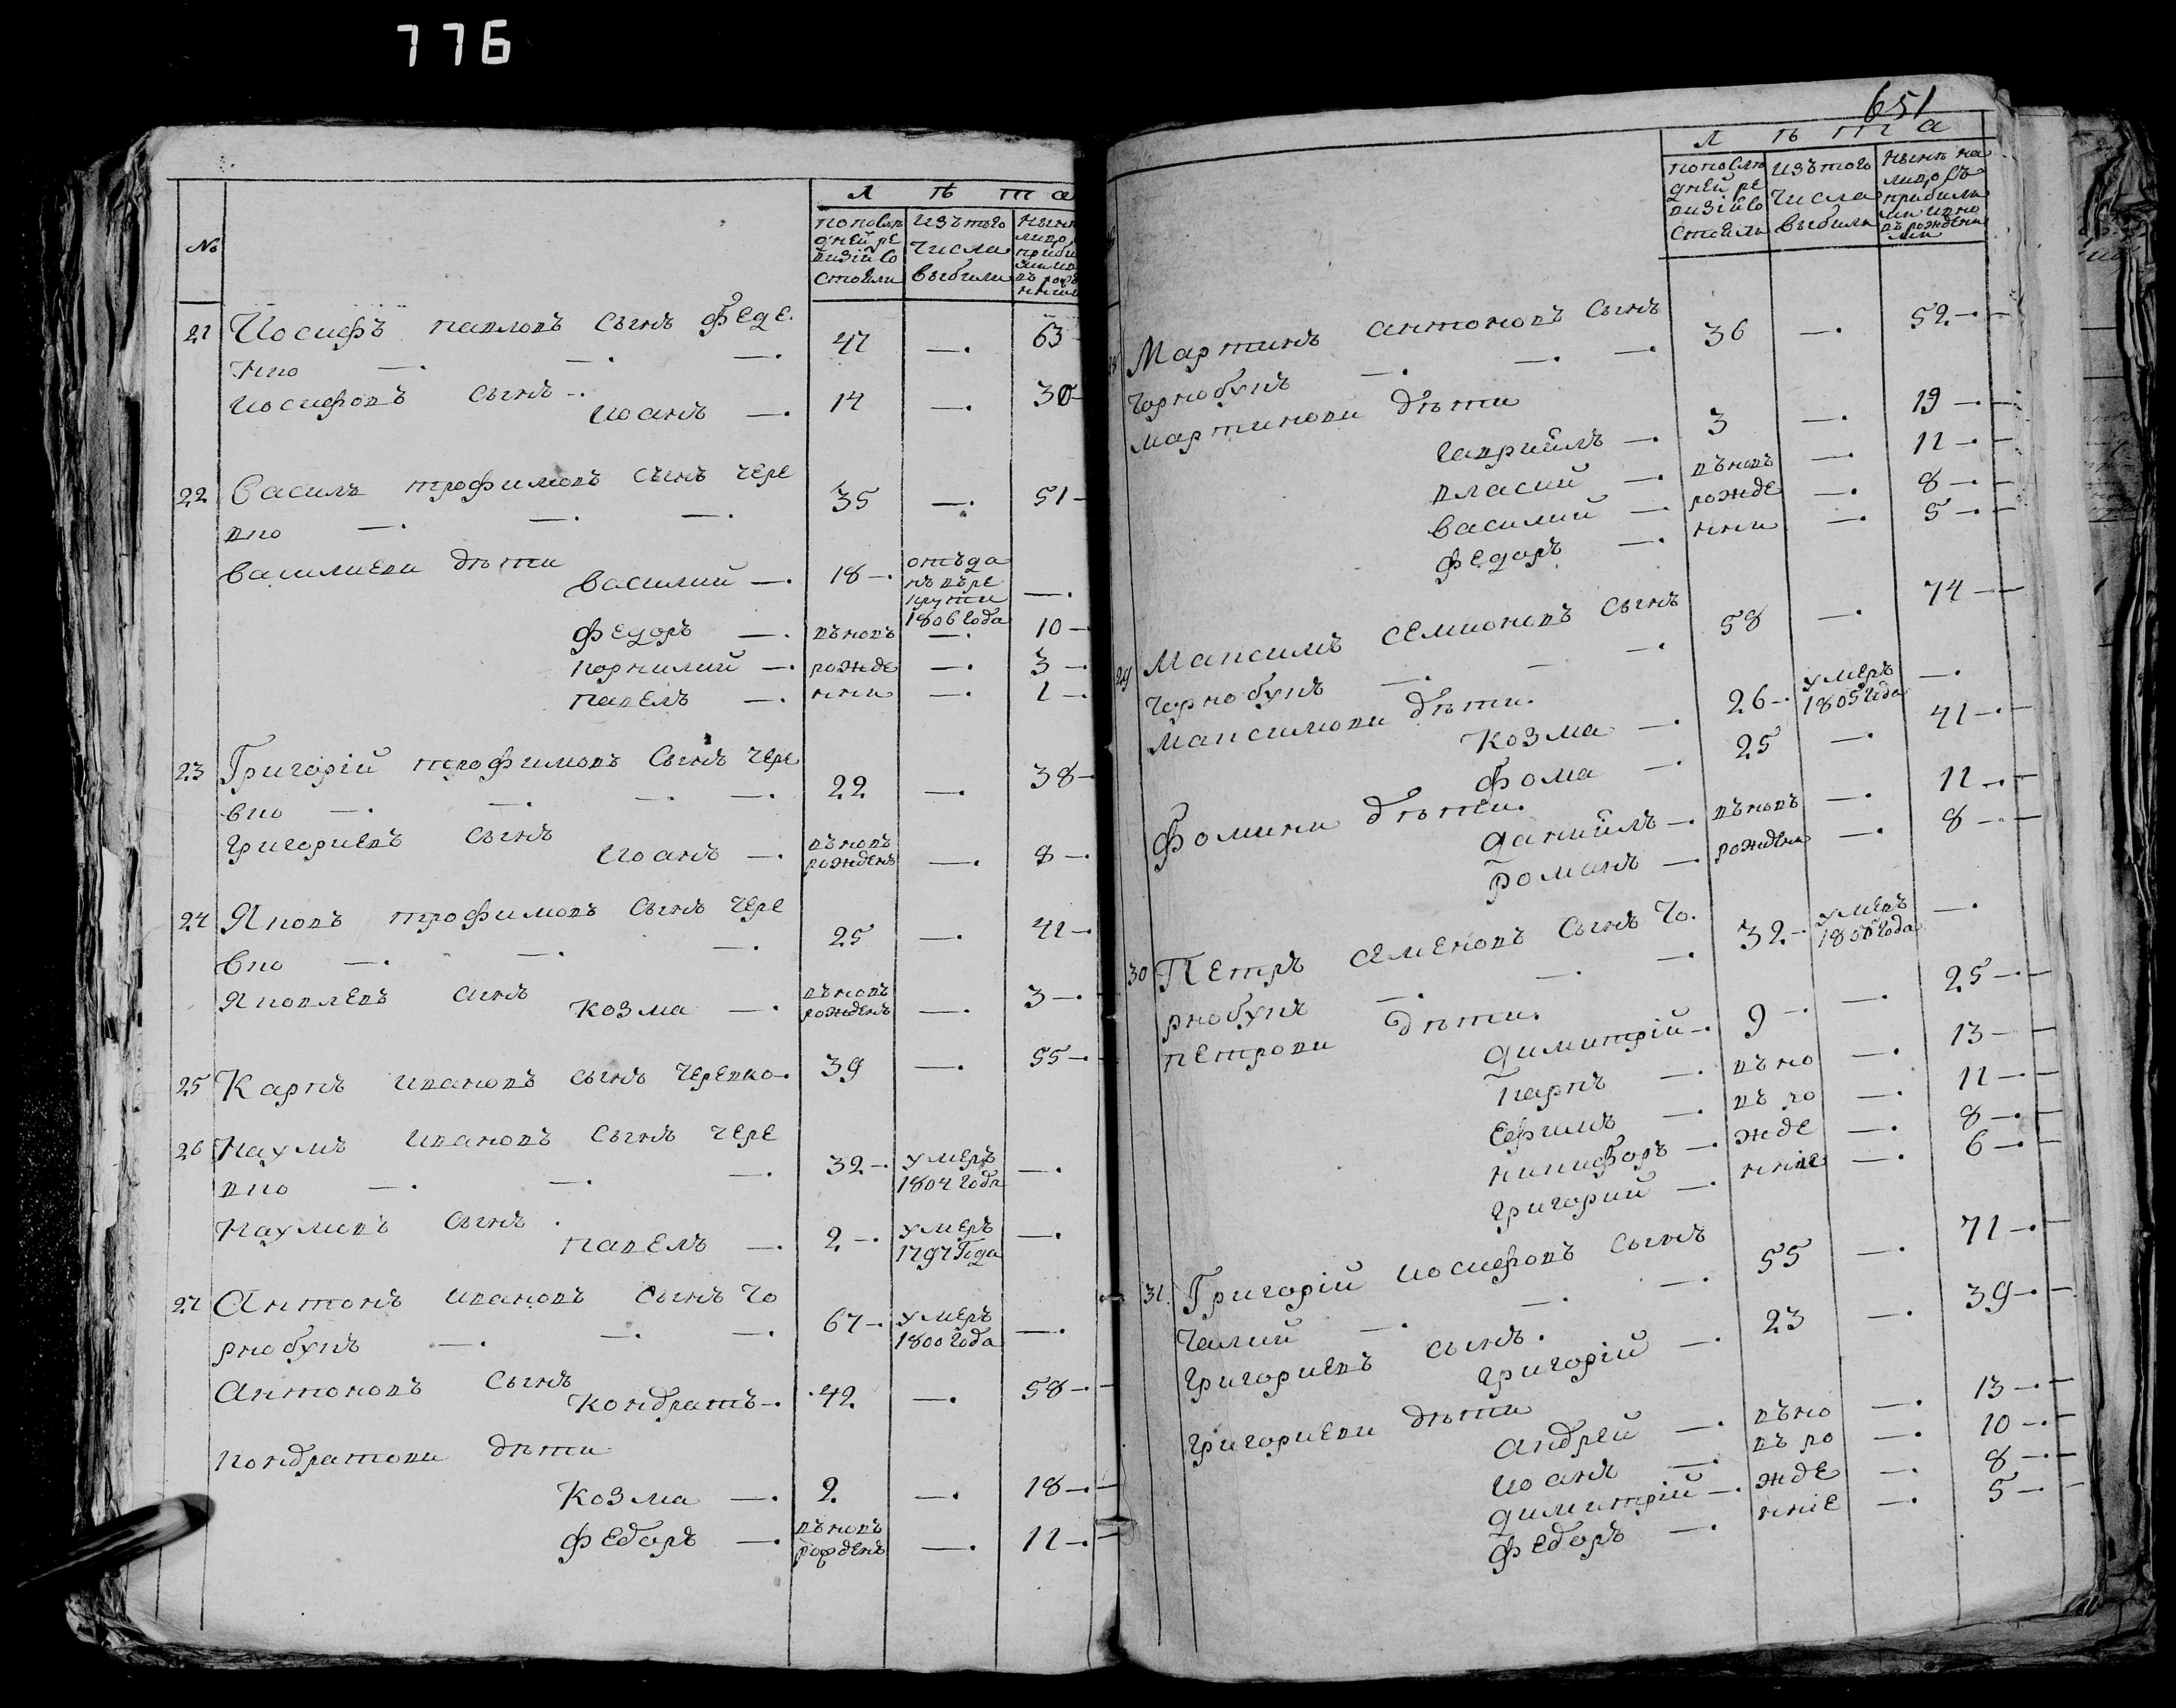 776
№
Л ѣ т а
по послѣ
дней ре
визiи со
стояли
изъ того
числа
выбыли
21 Иосифъ павловъ сынъ Феде.
нко —. —. —. 47 —. 63
Иосифовъ сынъ —.
Иоанъ —. 14 —. 30
22 Василъ трофимовъ сынъ чере
вко —. —. —. 35 —. 51 —
василиеви дѣти
василий —. 18 —. отъда
нъ въ ре
крути
1806 года —.
федоръ —. въновъ —. 10 —
корнилий —. рожде —. 3 —.
павелъ —. нни —. 1 —.
23 Григорiй трофимовъ Сынъ чере
вко —. —. —. —. 22 —. 38 —.
григориевъ сынъ
Иоанъ —. въновъ
рожденъ —. 8 —.
24 Яковъ трофимовъ Сынъ чере
вко —. —. —. 25 —. 41 —.
Яковлевъ синъ
козма —. въновъ
рожденъ —. 3 —.
25 Карпъ ивановъ сынъ черевко —. 39 —. 55 —.
26 Наумъ ивановъ Сынъ чере
вко —. —. —. 32 —. умеръ
1804 года —.
Наумовъ сынъ.
павелъ —. 2 —. умеръ
1797 года —.
27 Антонъ ивановъ сынъ Чо
рнобукъ —. —. —. 67 —. умеръ
1800 года —.
Антоновъ сынъ
кондратъ —. 42 —. 58 —.
кондратови дѣти
козма —. 2 —. 18 —.
федоръ —. въновъ
рожденъ —. 11 —.
651
Л ѣ т а
по послѣ
дней ре
визiй со
стояли
изъ того
числа
выбили
нынѣ на
лицо съ
прибили
ми и вно
въ рожденн
ми
28 Мартинъ антоновъ сынъ
чорнобукъ —. —. —. 36 —. 52 —.
мартинови дѣти
гавриилъ —. 3 —. 19 —.
власий —. въновъ —. 11 —.
василий —. рожде —. 8 —.
федоръ —. нни —. 5 —.
29 Максимъ семионовъ сынъ
чорнобукъ —. —. —. 58 —. 74 —
максимови дѣти.
козма —. 26 —. умеръ
1805 года —.
фома —. 25 —. 41 —.
фомини дѣти.
даниилъ —. въновъ —. 11 —.
романъ —. рождени —. 8 —
30 Петръ семеновъ сынъ Чо.
рнобукъ —. —. —. 32 —. умеръ
года —.
петрови дѣти.
димитрiй —. 9 —. —. 25 —.
карпъ —. въно —. 13 —
ефимъ —. въ ро —. 11 —.
никифоръ —. жде —. 8 —.
григорий —. ннiе —. 6 —.
31. Григорiй иосифовъ сынъ
чалий —. —. —. 55 —. 71 —.
григориевъ сынъ.
григорiй —. 23 —. 39 —.
григориеви дѣти
андрей —. въно —. 13 —.
иоанъ —. въ ро —. 10 —.
димитрiй —. жде —. 8 —.
федоръ —. ннiе —. 5 —.